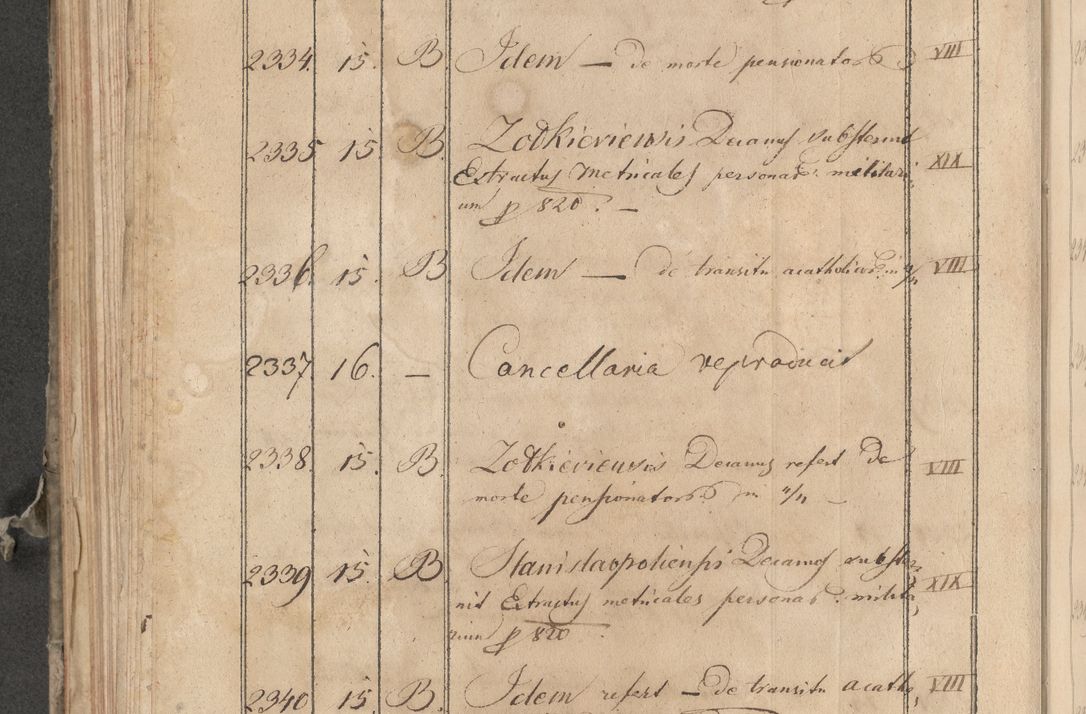 2334. 15. B. Idem — de morte pensionator VIII
2335 15 B. Zołkieviensis Decanus substernit XIX
Extractus Metricales personar: militari
um p 820. —
2336. 15. B Idem — de transitu acatholicor: in VIII
2337. 16. — Cancellaria reproducit
2338. 15. B. Zołkieviensis Decanus refert de VIII
morte pensionator: in —
2339 15. B. Stanislaopoliensis Decanus subster= XIX
nit Extractus metricales personar: milita
rium p 820
2340 15. B. Idem refert — de transitu acatho VIII